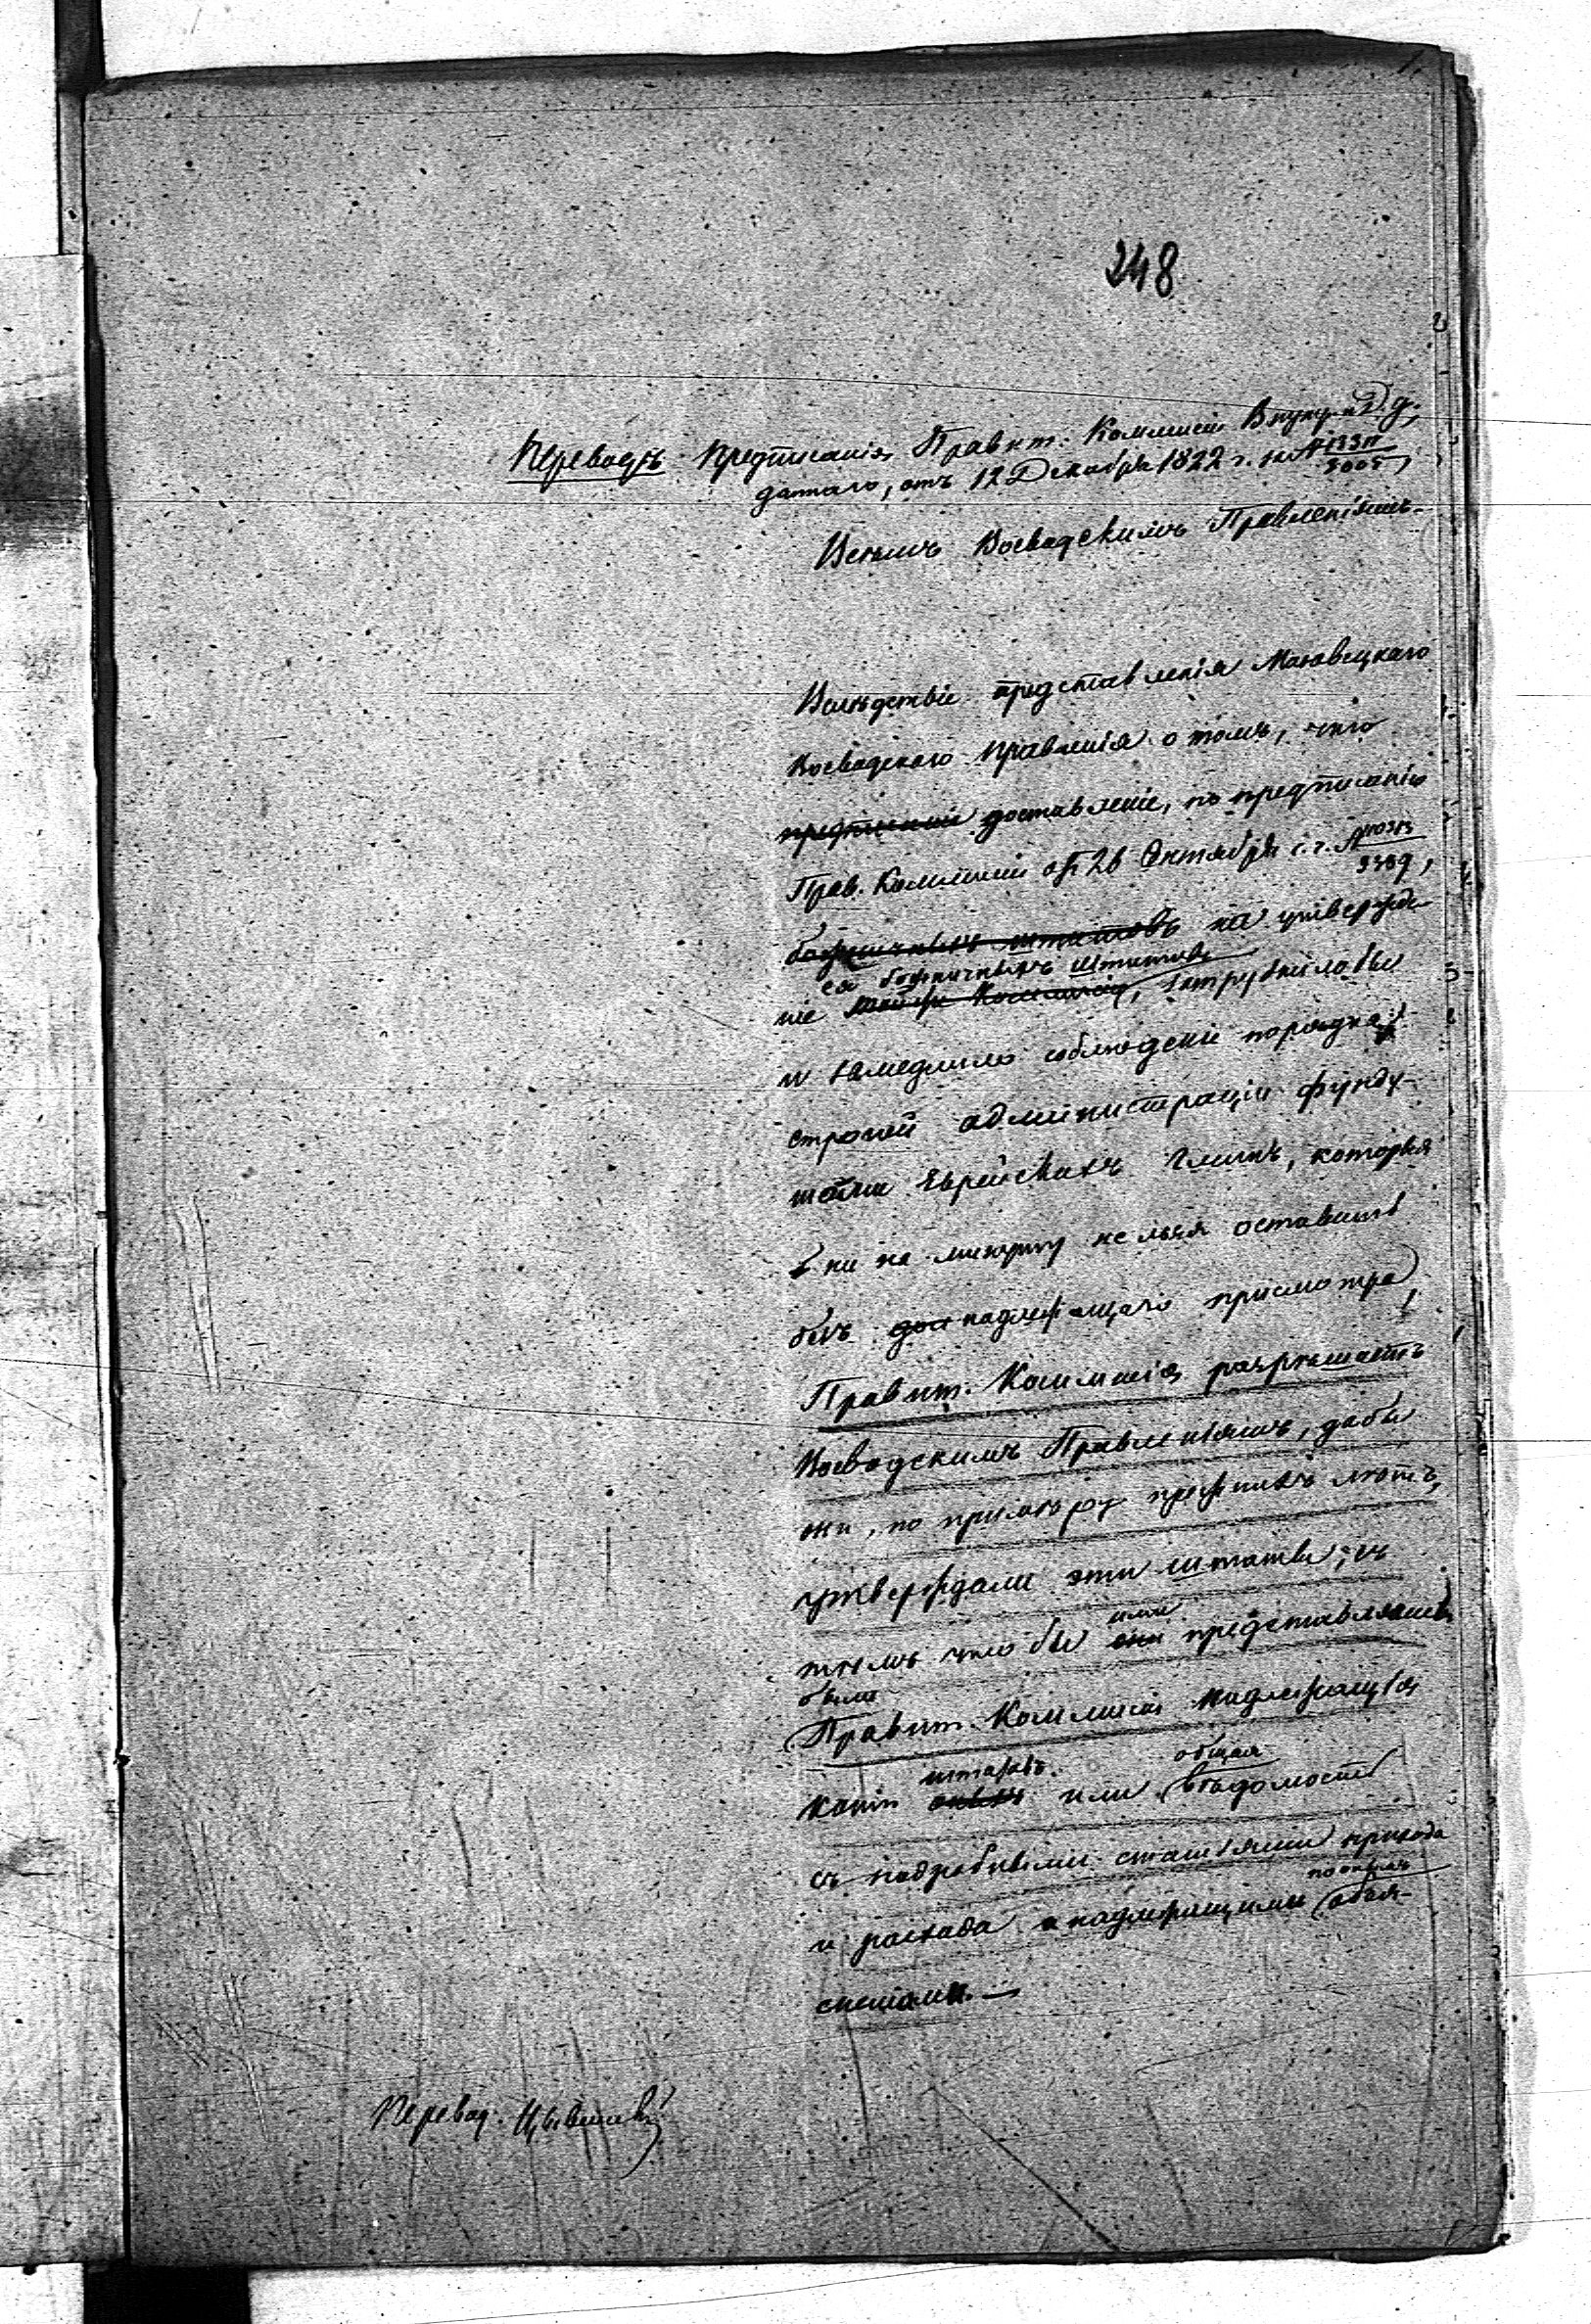 248
Переводъ Предписанія Правит. Коммисіи Внутр. Д. д.,
даннаго, отъ 12 Декабря 1822 г. за №
Всѣмъ Воеводскимъ Правленіямъ.
Вслѣдствіе представленія Мазовецкаго
Воеводскаго Правленія о томъ, что
предписаніи доставленіе, по предписанію
Прав. Коммисіи отъ 26 Октября с. г. №
божничныхъ штатовъ на утвержде-
ея божничныхъ штатовъ
ніе Коммисіи, затруднило бы
и замедлило соблюденіе порядка
строгой администраціи фунду-
шами Еврейскихъ гминъ, которыя
ни на минуту нельзя оставить
безъ надлежащаго присмотра,
Правит. Коммисія разрѣшаетъ
Воеводскимъ Правленіямъ, дабы
они, по примѣру прежнихъ лѣтъ,
утверждали эти штаты, съ
ими
тѣмъ чтобы они представляемы
были
Правит. Коммисіи надлежащія
штатовъ. общая
копіи оныхъ или вѣдомость
съ подробными статьями прихода
и расхода и надлежащими объя-
сненіями. —
Перевод.